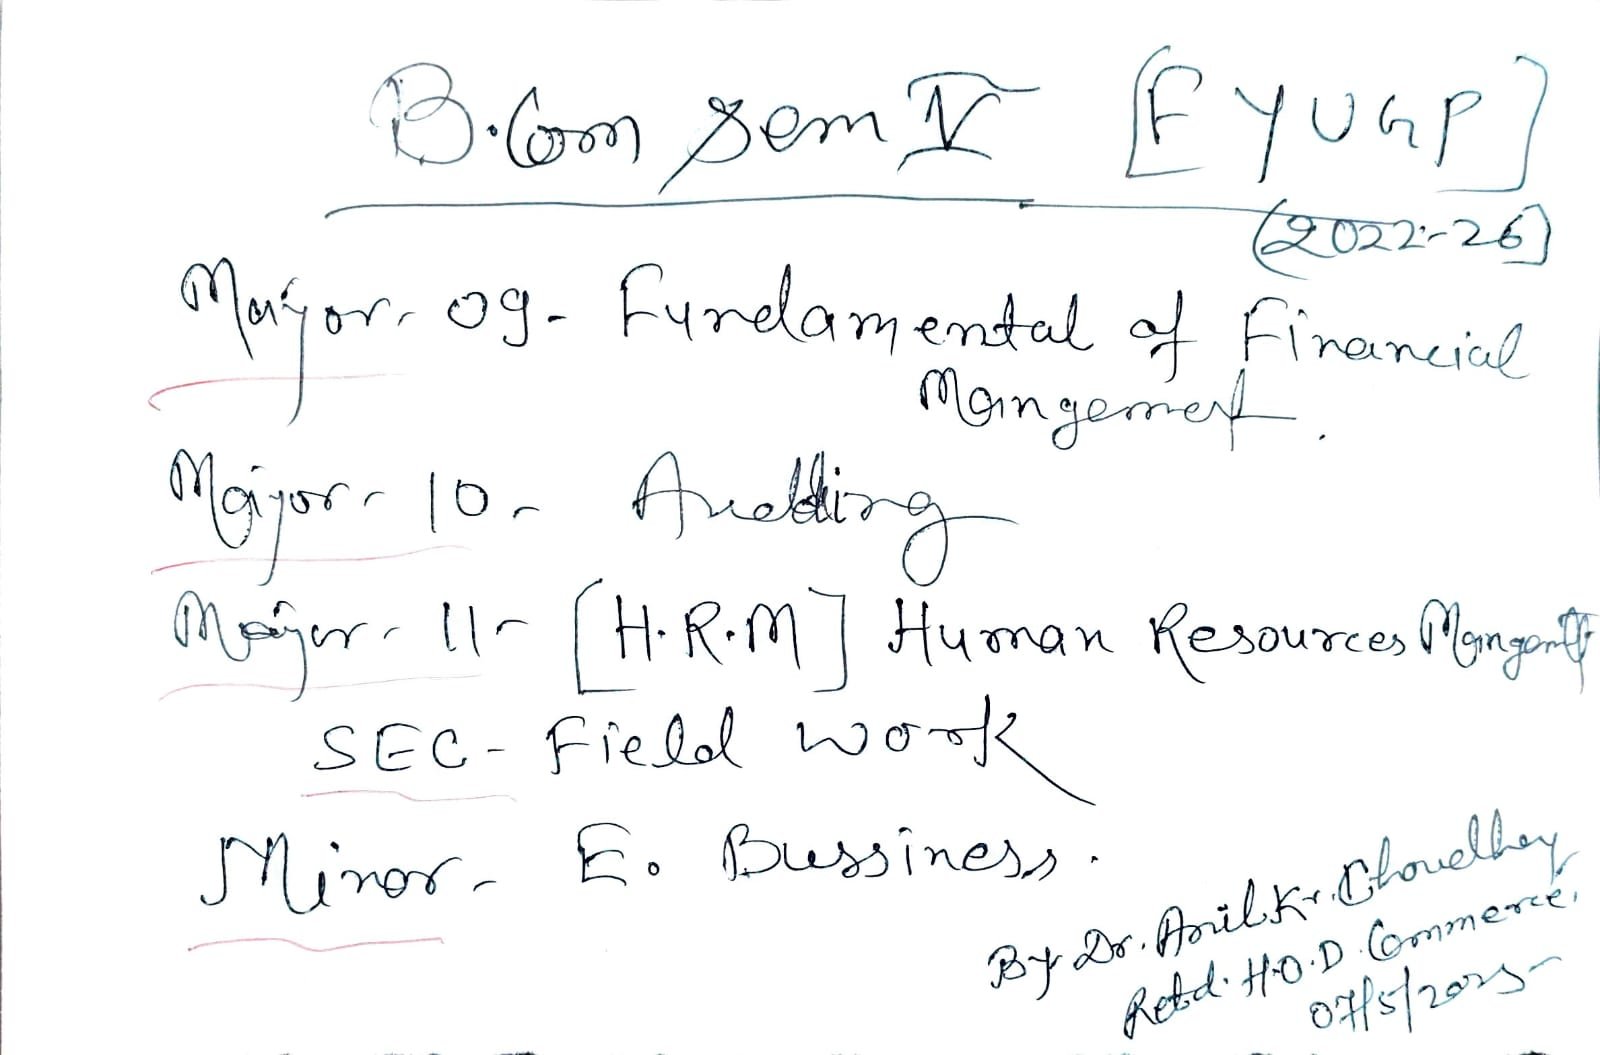 B.Com Sem V [FYUGP]
(2022-26)
Major- 09- Fundamental of Financial
Mangement.
Major- 10- Auditing
Major- 11- [H.R.M] Human Resources
SEC- Field work
Minor- E. Bussiness.
By Dr. Anil Kr. Choudhay
Retd. H.O.D. Commerce.
07/5/2025